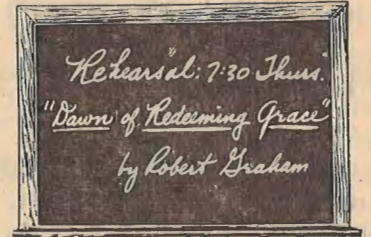 Rehearsal: 7:30 Thurs.
"Dawn of Redeeming Grace"
by Robert Graham